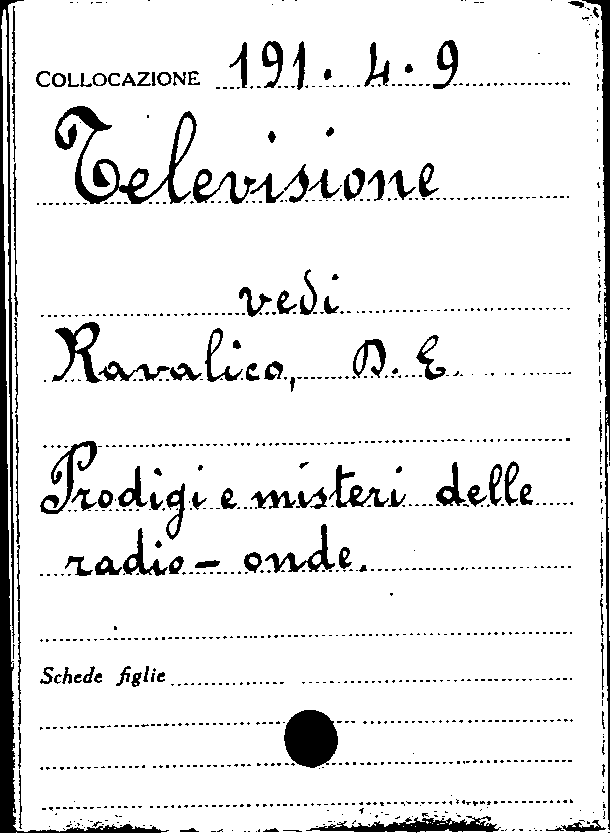 COLLOCAZIONE 191. 4. 9
Televisione
vedi
Ravalico, D. E.
Prodigi e misteri delle
radio - onde.
Schede figlie